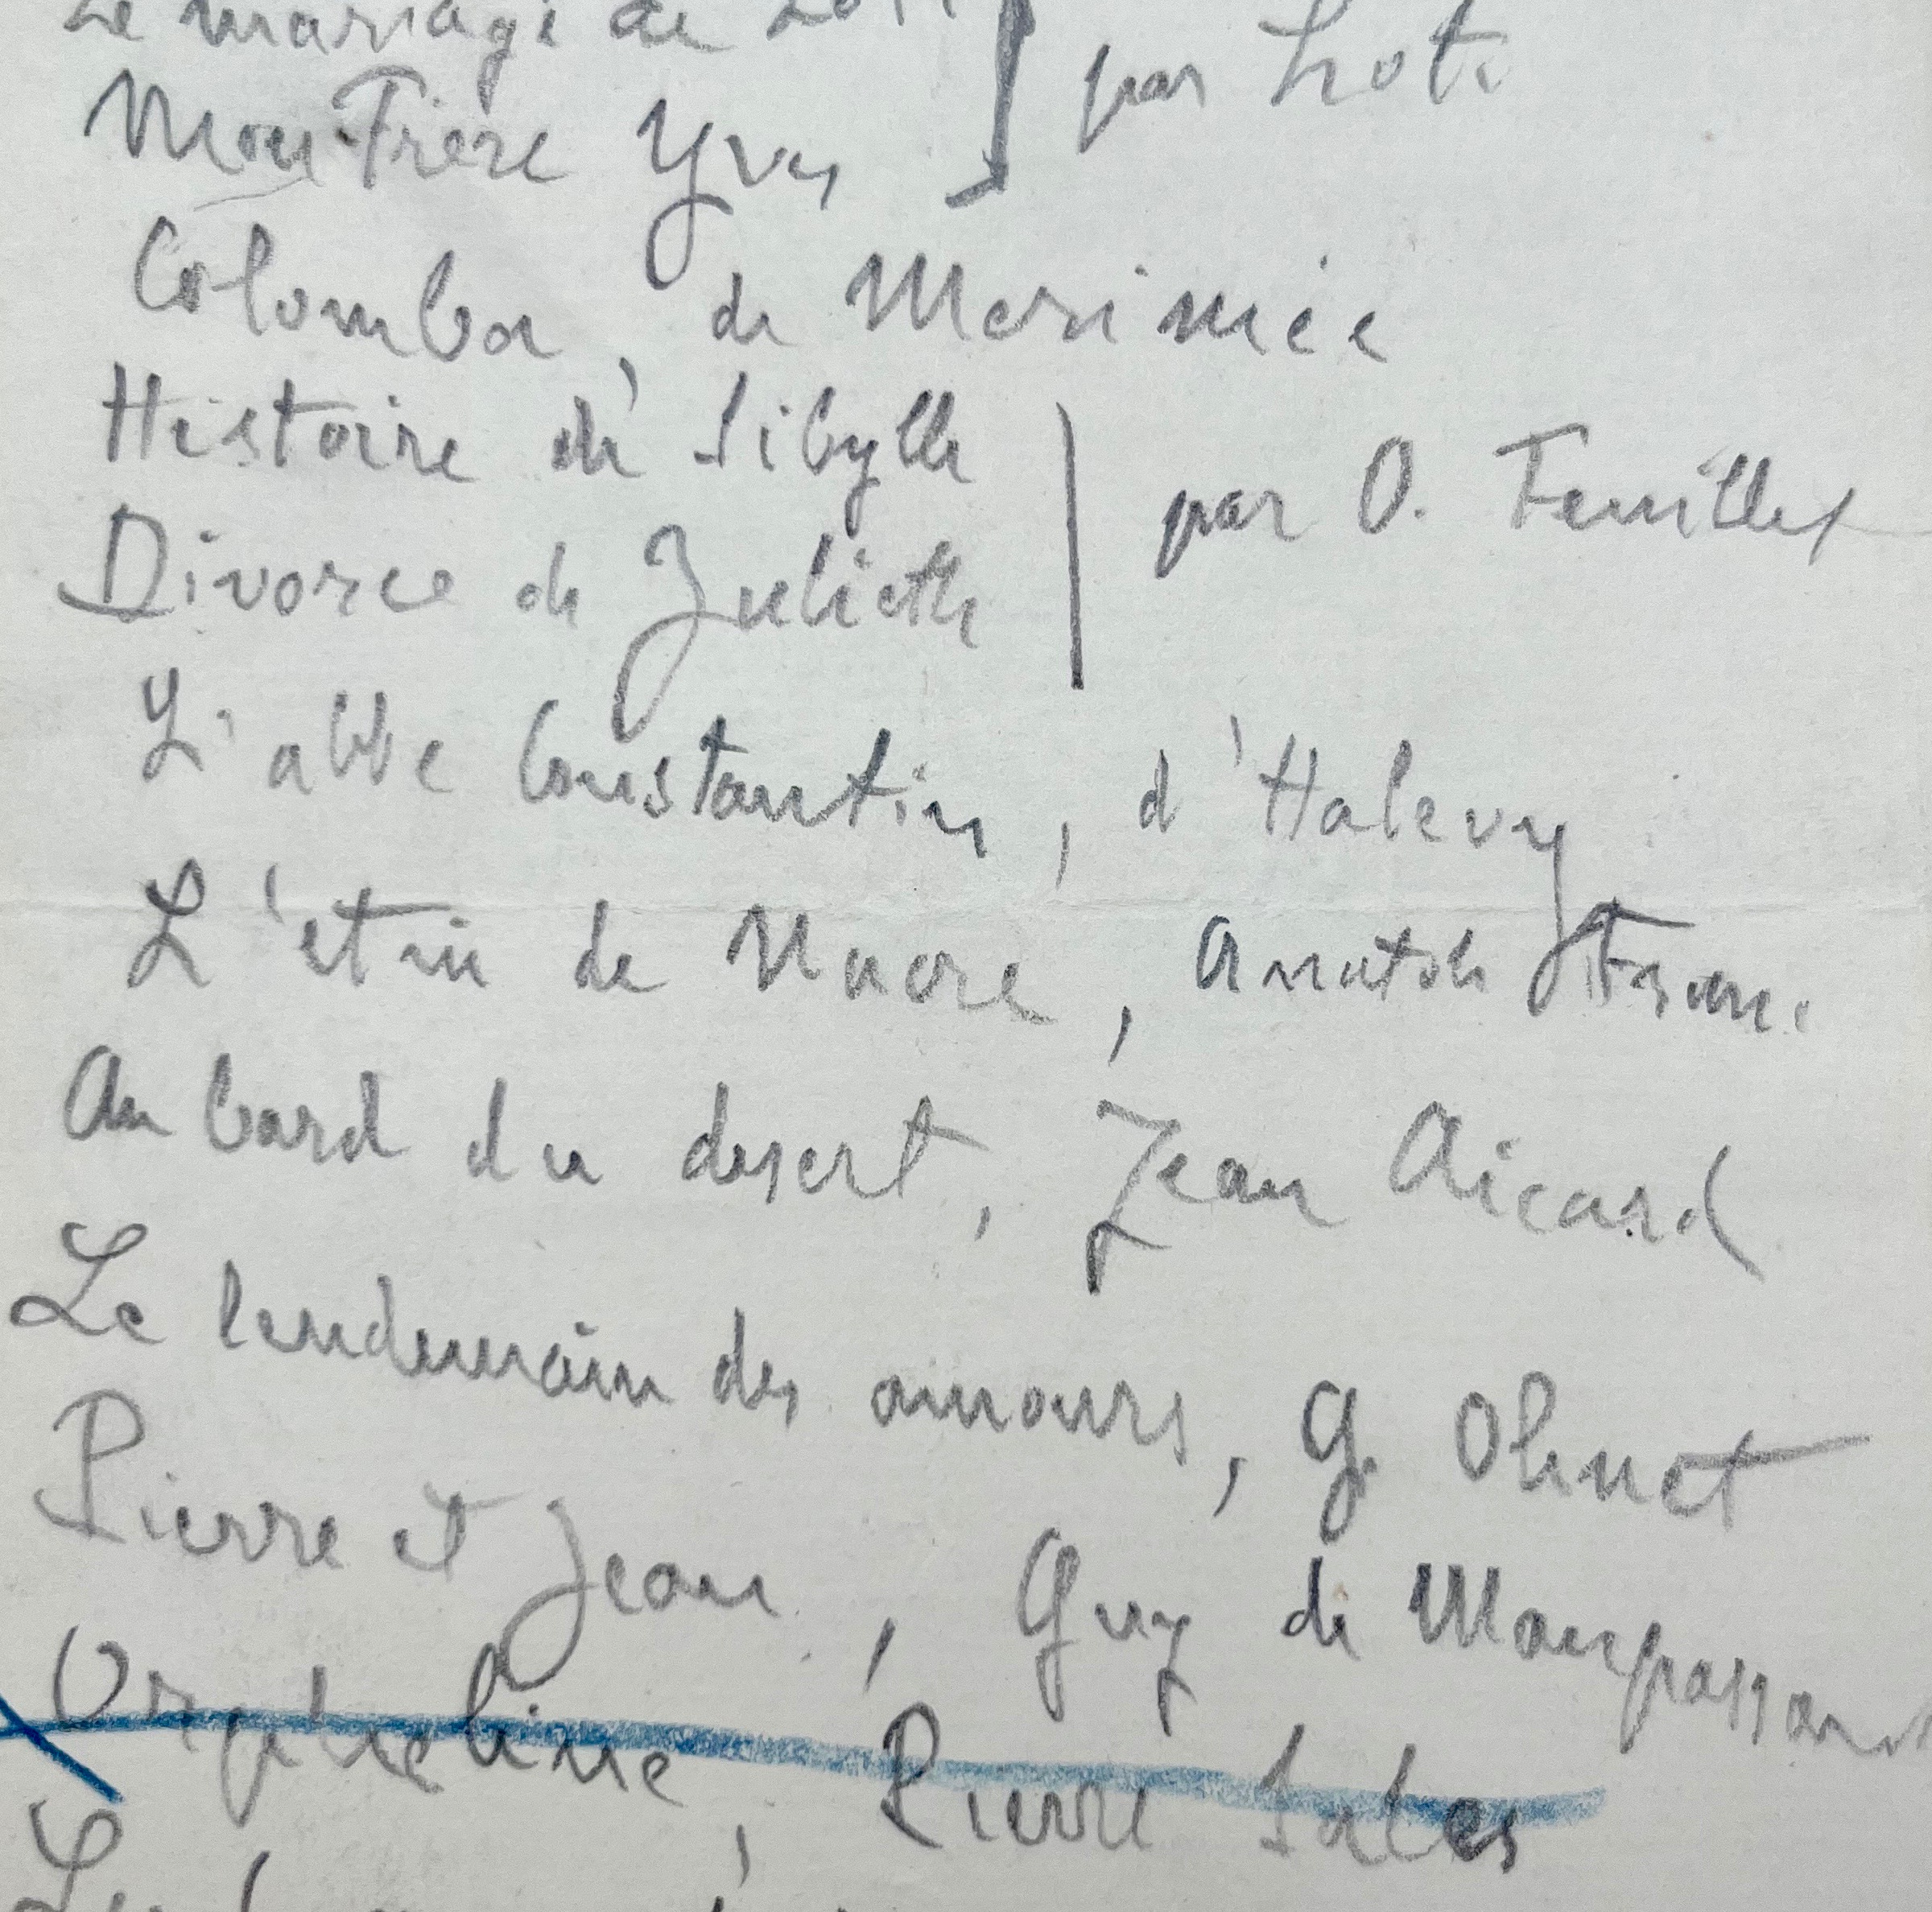 Le mariage de Loti
Mon Frère Yves par Loti
Colomba, de Merimée
Histoire de Sibylle
par O. Feuillet
Divorce de Juliette
L'abbe Constantin, d'Halevy
L'etui de Nacre, Anatole France
Au bord du desert, Jean Aicard
Le lendemain des amours, G. Ohnet
Pierre et Jean, Guy de Maupassant
Orpheline, Pierre Sales